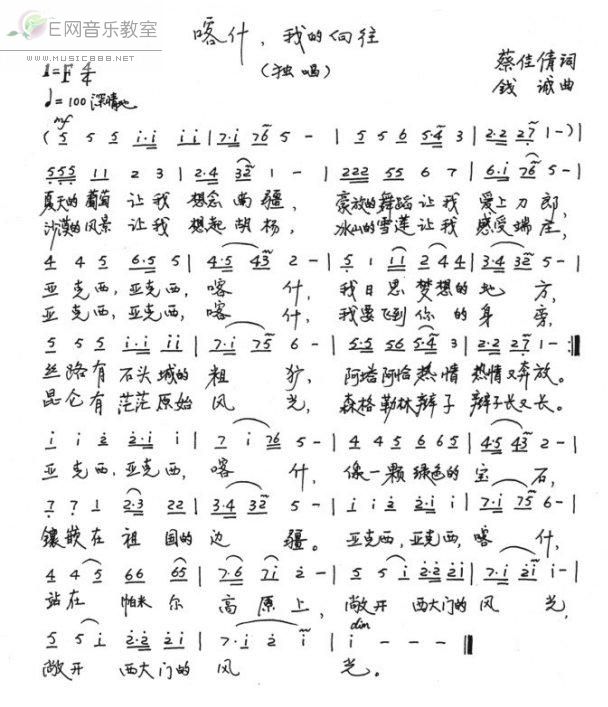 E网音乐教室
WWW.MUSIC888.NET
喀什，我的向往
（独唱）
1=F 4/4
蔡佳倩词
钱诚曲
♩=100 深情地
mf
(5 5 5 i·i i i | 7·i 76 5 - | 5 5 6 5·4 3 | 2·2 27 1 -) |
555 11 2 3 | 2·4 32 1 - | 222 55 6 7 | 6·i 76 5 - |
夏天的葡萄 让我 想念南疆， 豪放的舞蹈让我 爱上刀郎，
沙漠的风景 让我 想起胡杨， 冰山的雪莲让我 感受端庄，
4 4 5 6·5 5 | 4·5 43 2 - | 5 1 11 2 4 4 | 3·4 32 5 - |
亚克西，亚克西， 喀 什， 我日思梦想的地 方，
亚克西，亚克西， 喀 什， 我要飞到你的身 旁，
5 5 5 i·i i i | 7·i 75 6 - | 5 5 56 5·4 3 | 2·2 27 1 - :‖
丝路有 石头城的 粗 犷， 阿塔阿恰热情 热情又奔放。
昆仑有 茫茫原始 风 光， 森格勒林辫子 辫子长又长。
i i 2 2·i i | 7 i 76 5 - | 4 4 5 6 6 5 | 4·5 43 2 - |
亚克西，亚克西， 喀 什， 像一颗绿色的宝 石，
7 7 1 2·3 22 | 3·4 32 5 - | i i 2 2·i i | 7·i 75 6 - |
镶嵌在 祖 国的 边 疆。 亚克西，亚克西，喀 什，
4 4 5 66 65 | 7·6 7i 2 - | 5 5 i 2·2 2i | 7·i 2i i - |
站在 帕米 尔 高原上， 敞开 西大门的风 光，
dim
5 5 i 2·2 2i | 7·i 2 i | i - - - ‖
敞开 西大门的 风 光。